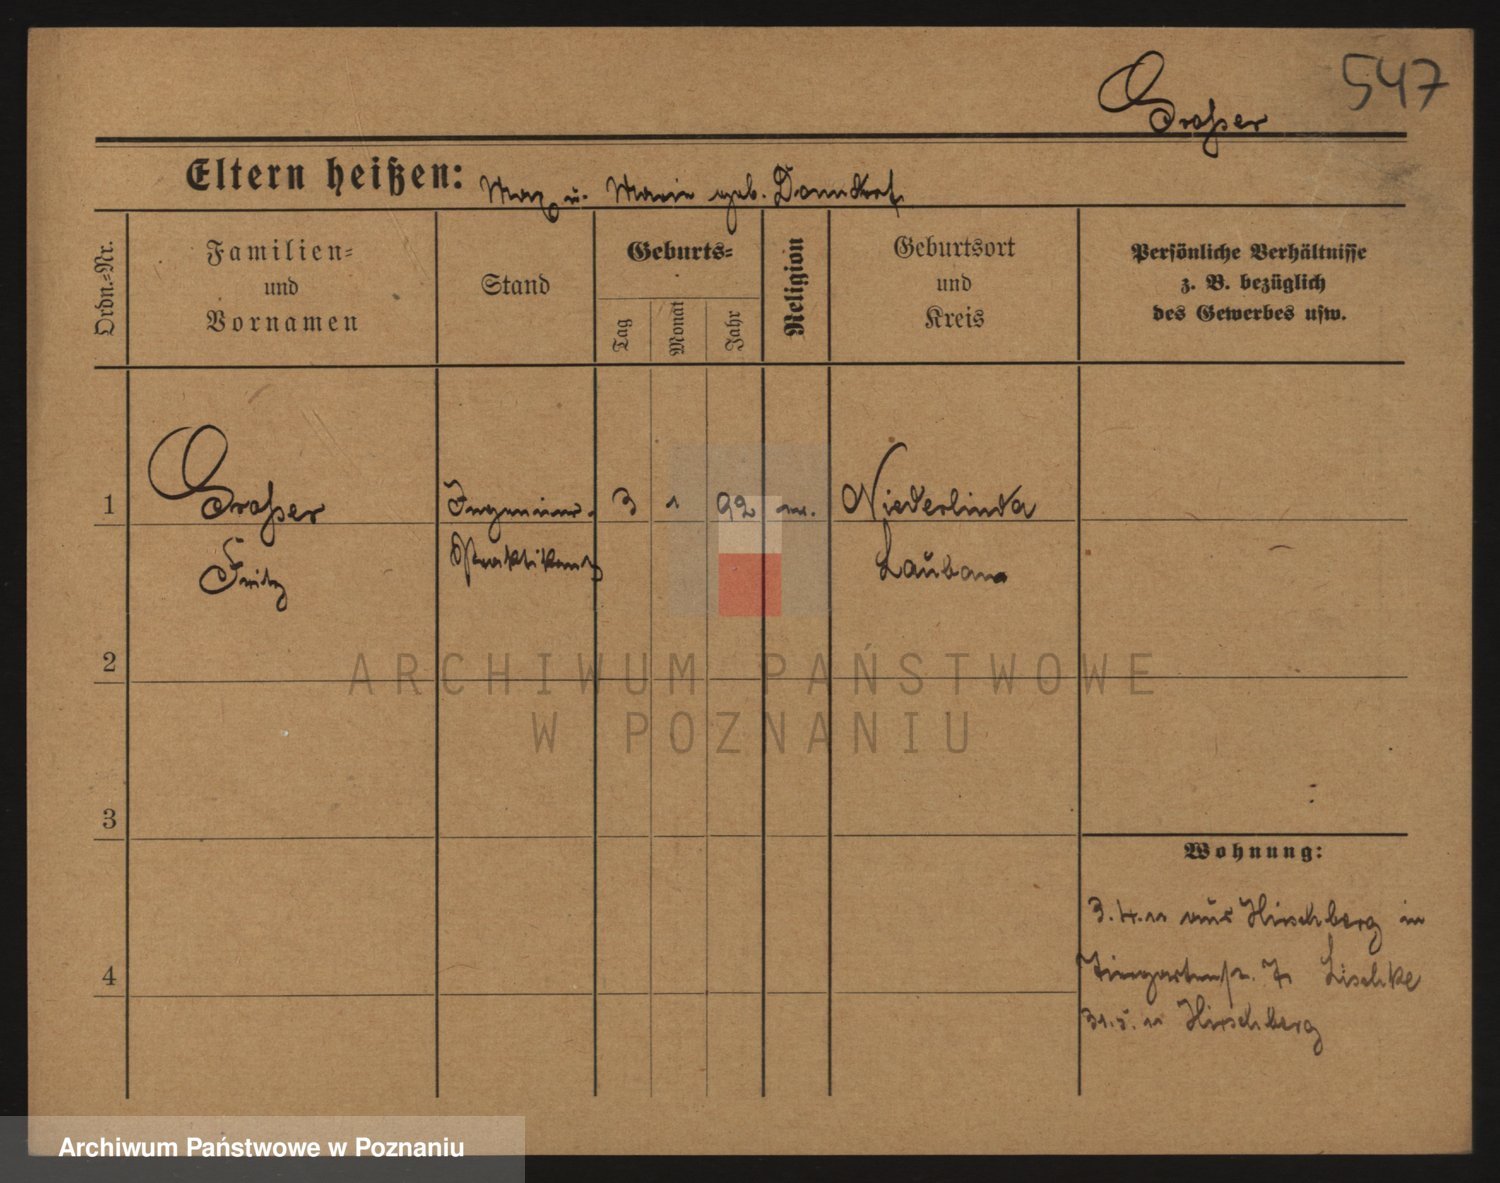 547
Großer
Eltern heißen: Max u. Marie geb. Domdorf
Ordn.-Nr.
Familien-
und
Vornamen
Stand
Geburts-
Tag
Monat
Jahr
Religion
Geburtsort
und
Kreis
Persönliche Verhältnisse
z. B. bezüglich
des Gewerbes usw.
1 Großer Ingenieur- 3 1 92 ev. Niederlinda
Fritz Praktikant Lauban
2
ARCHIWUM PAŃSTWOWE
W POZNANIU
3
Wohnung:
3.4.11 aus Hirschberg in
Tiergartenstr. 7 Lischke
4
31.5.11 Hirschberg
Archiwum Państwowe w Poznaniu